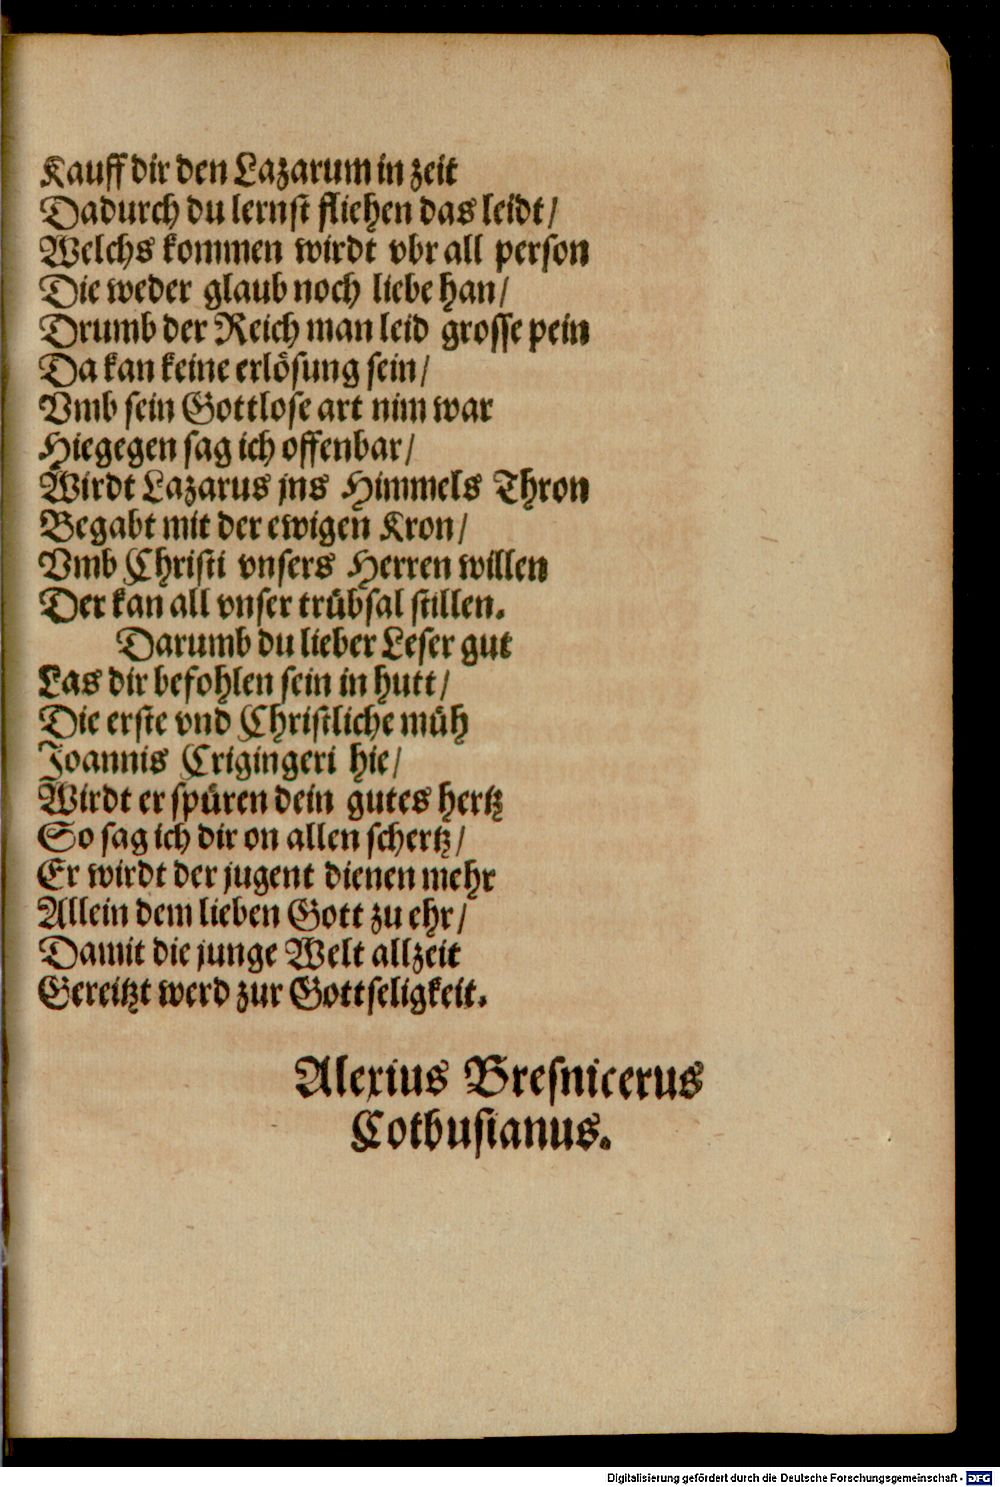 Kauff dir den Lazarum in zeit
Dadurch du lernst fliehen das leidt/
Welchs kommen wirdt vbr all person
Die weder glaub noch liebe han/
Drumb der Reich man leid grosse pein
Da kan keine erlösung sein/
Vmb sein Gottlose art nim war
Hiegegen sag ich offenbar/
Wirdt Lazarus jns Himmels Thron
Begabt mit der ewigen Kron/
Vmb Christi vnsers Herren willen
Der kan all vnser trübsal stillen.
Darumb du lieber Leser gut
Las dir befohlen sein in hutt/
Die erste vnd Christliche müh
Joannis Crigingeri hie/
Wirdt er spüren dein gutes hertz
So sag ich dir on allen schertz/
Er wirdt der jugent dienen mehr
Allein dem lieben Gott zu ehr/
Damit die junge Welt allzeit
Gereitzt werd zur Gottseligkeit.
Alexius Bresnicerus
Cotbusianus.
Digitalisierung gefördert durch die Deutsche Forschungsgemeinschaft - DFG